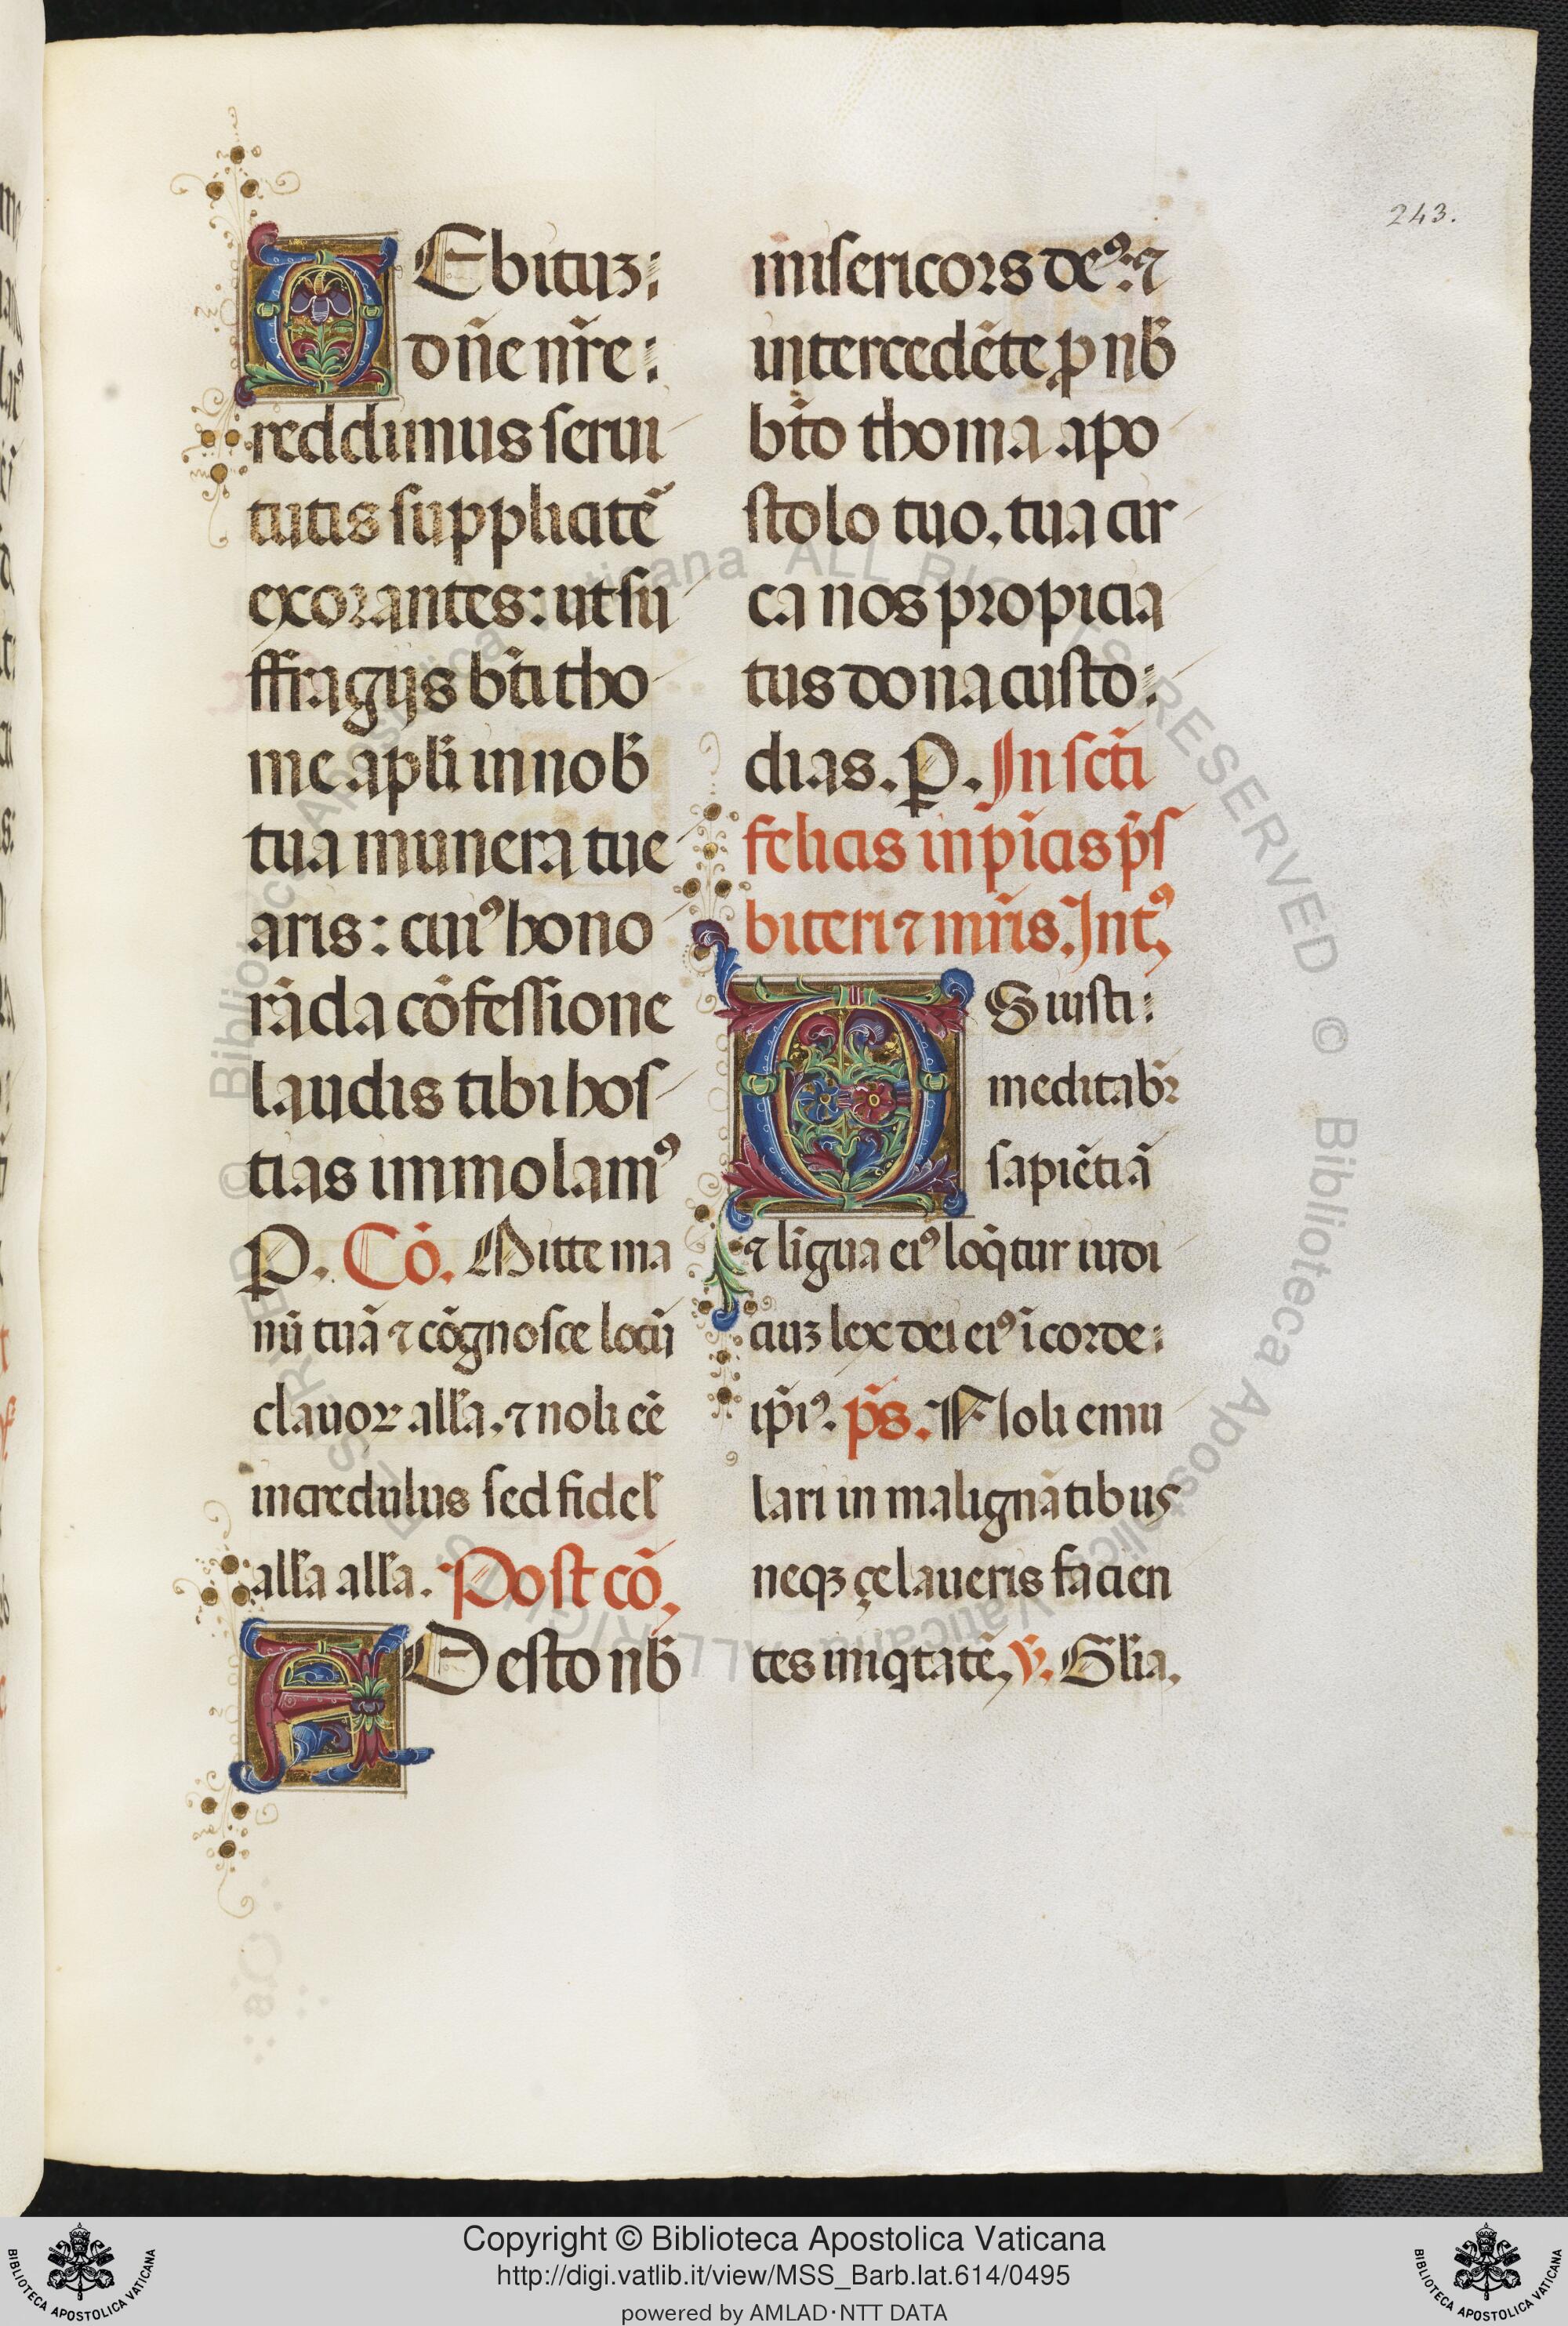 243.
DEbituꝫ:
dn̄e nr̄e:
reddimus serui
tutis supplicatē
exorantes: ut su
ffragijs bt̄i tho
me apl̄i in nob̄
tua munera tue
aris: cuiꝰ hono
rāda cōfessione
laudis tibi hos
tias immolamꝰ
P. Cō. Mitte ma
nū tuā ⁊ cōgnosce locū
clauoꝝ all̄a. ⁊ noli eē
incredulus sed fidel̄
all̄a all̄a. Post cō,
ADesto nb̄
misericors deꝰ: ⁊
intercedēte ꝓ nb̄
bt̄o thoma apo
stolo tuo. tua cir
ca nos propicia
tus dona custo:
dias. P. In scti̅
felicis in pīcis p̄s
biteri ⁊ mr̄is. Intꝰ,
OS iusti:
meditabr̄
sapiētiā
⁊ līgua eiꝰ loq̄tur iudi
ciuꝫ lex dei eiꝰ ī corde:
ip̄iꝰ. p̄s. Noli emu
lari in malignātibus
neqꝫ çelaueris facien
tes iniq̄tatē, ꝟ. Gl̄ia.
Copyright © Biblioteca Apostolica Vaticana
http://digi.vatlib.it/view/MSS_Barb.lat.614/0495
powered by AMLAD·NTT DATA
BIBLIOTECA APOSTOLICA VATICANA
BIBLIOTECA APOSTOLICA VATICANA